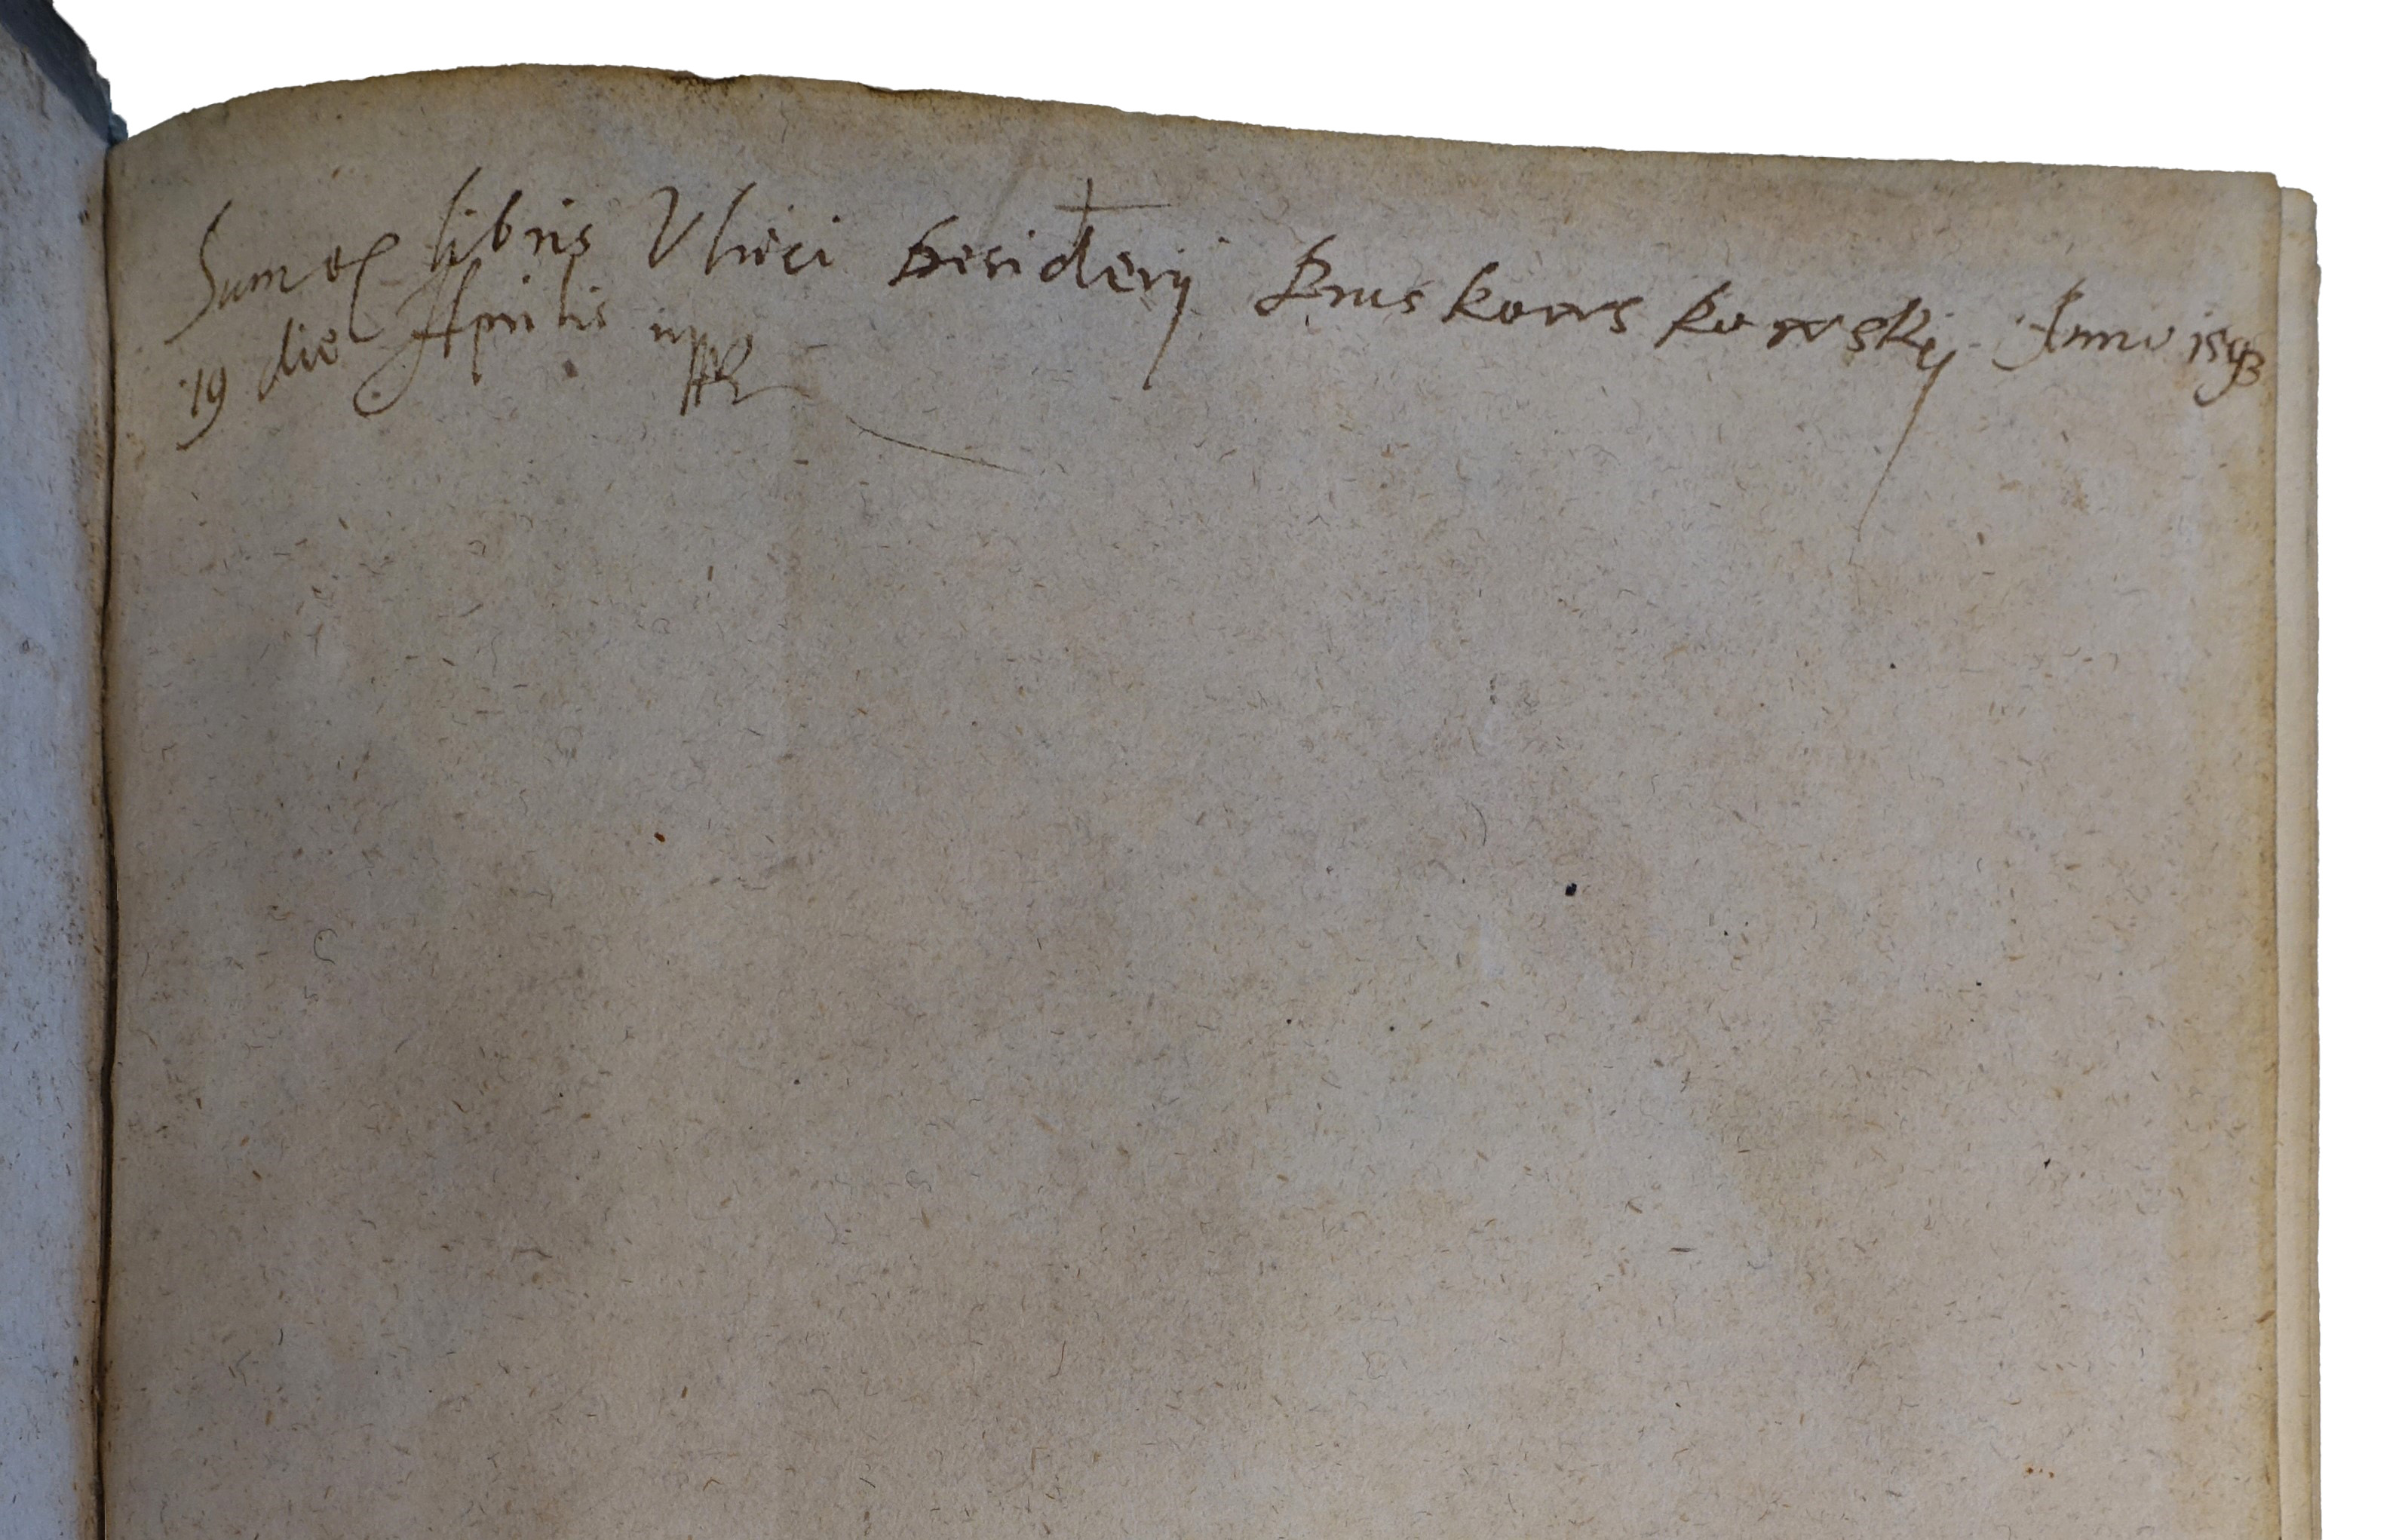 Sum ex libris Vlrici Desiderij Pruskowskowskij Anno 1593
19 die Aprilis mppa